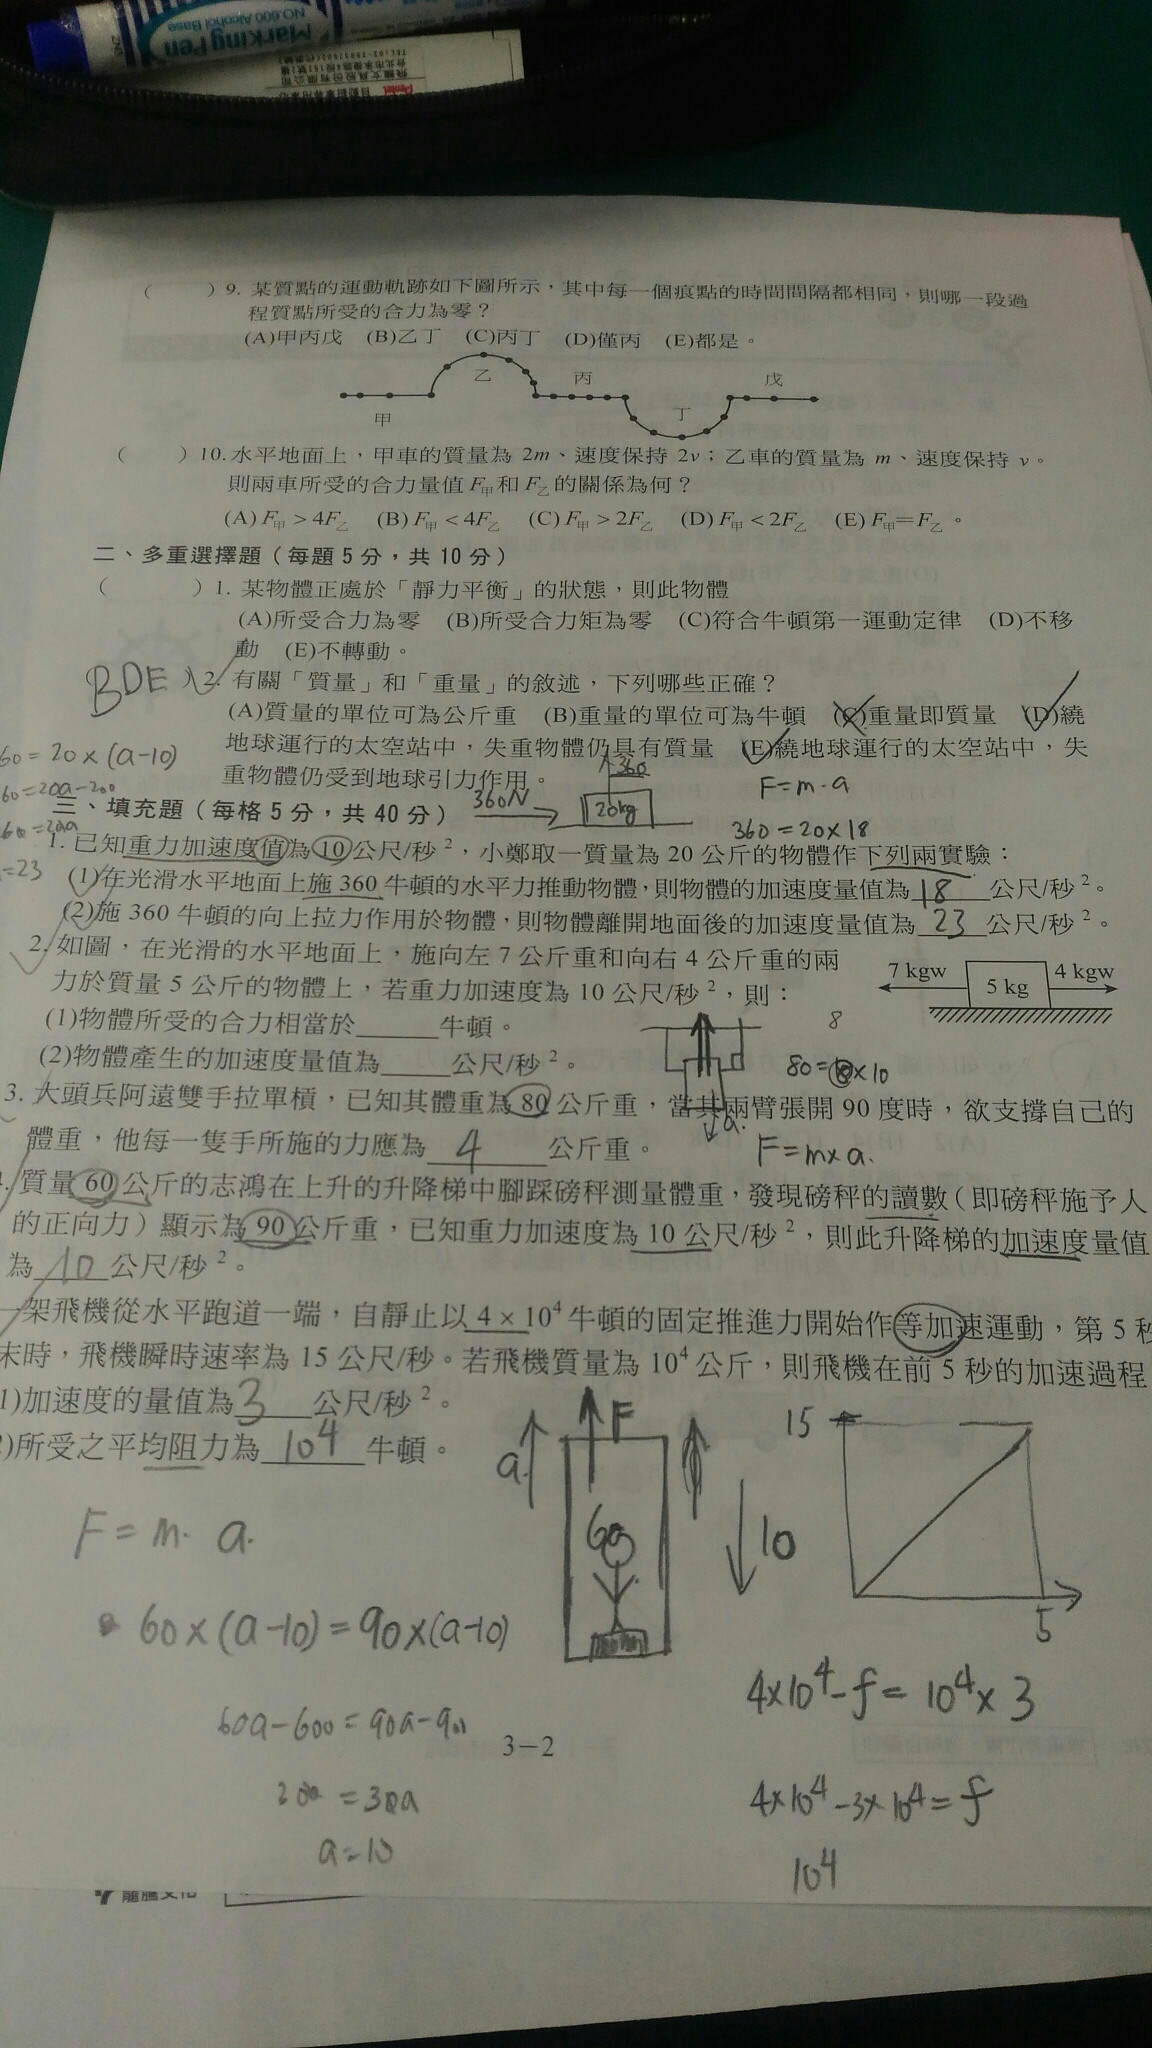 Marking Pen
NO.600 Alcohol Base
( )9. 某質點的運動軌跡如下圖所示，其中每一個痕點的時間間隔都相同，則哪一段過
程質點所受的合力為零？
(A)甲丙戊 (B)乙丁 (C)丙丁 (D)僅丙 (E)都是。
甲 乙 丙 丁 戊
( )10. 水平地面上，甲車的質量為 2m、速度保持 2v；乙車的質量為 m、速度保持 v。
則兩車所受的合力量值 F甲和 F乙 的關係為何？
(A) F甲＞4F乙 (B) F甲＜4F乙 (C) F甲＞2F乙 (D) F甲＜2F乙 (E) F甲＝F乙。
二、多重選擇題（每題 5 分，共 10 分）
( )1. 某物體正處於「靜力平衡」的狀態，則此物體
(A)所受合力為零 (B)所受合力矩為零 (C)符合牛頓第一運動定律 (D)不移
動 (E)不轉動。
BDE )2. 有關「質量」和「重量」的敘述，下列哪些正確？
(A)質量的單位可為公斤重 (B)重量的單位可為牛頓 (C)重量即質量 (D)繞
地球運行的太空站中，失重物體仍具有質量 (E)繞地球運行的太空站中，失
重物體仍受到地球引力作用。
60=20×(a-10)
60=20a-200
=23
360
360N
20kg
F=m·a
360=20×18
三、填充題（每格 5 分，共 40 分）
1. 已知重力加速度值為 10 公尺/秒²，小鄭取一質量為 20 公斤的物體作下列兩實驗：
(1)在光滑水平地面上施 360 牛頓的水平力推動物體，則物體的加速度量值為 18 公尺/秒²。
(2)施 360 牛頓的向上拉力作用於物體，則物體離開地面後的加速度量值為 23 公尺/秒²。
2. 如圖，在光滑的水平地面上，施向左 7 公斤重和向右 4 公斤重的兩
力於質量 5 公斤的物體上，若重力加速度為 10 公尺/秒²，則：
7 kgw 5 kg 4 kgw
(1)物體所受的合力相當於______牛頓。
(2)物體產生的加速度量值為_____公尺/秒²。
8
a.
3. 大頭兵阿遠雙手拉單槓，已知其體重為 80 公斤重，當其兩臂張開 90 度時，欲支撐自己的
體重，他每一隻手所施的力應為 4 公斤重。
F=m×a.
. 質量 60 公斤的志鴻在上升的升降梯中腳踩磅秤測量體重，發現磅秤的讀數（即磅秤施予人
的正向力）顯示為 90 公斤重，已知重力加速度為 10 公尺/秒²，則此升降梯的加速度量值
為 10 公尺/秒²。
一架飛機從水平跑道一端，自靜止以 4×10⁴ 牛頓的固定推進力開始作等加速運動，第 5 秒
末時，飛機瞬時速率為 15 公尺/秒。若飛機質量為 10⁴ 公斤，則飛機在前 5 秒的加速過程
1)加速度的量值為 3 公尺/秒²。
)所受之平均阻力為 10⁴ 牛頓。
a. F 60 10
15 5
F=m. a.
60×(a-10)=90×(a-10)
60a-600=90a-900
=30a
a=10
4×10⁴-f=10⁴×3
4×10⁴-3×10⁴=f
10⁴
3－2
龍騰文化